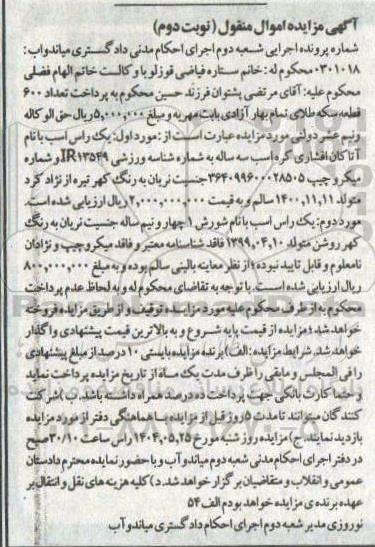 آگهی مزایده اموال منقول (نوبت دوم)
شماره پرونده اجرایی شعبه دوم اجرای احکام مدنی دادگستری میاندواب:
۰۳۰۱۰۱۸ محکوم له: خانم ستاره فیاضی قوزلو با وکالت خانم الهام فضلی
محکوم علیه: آقای مرتضی پشتوان فرزند حسین محکوم به پرداخت تعداد ۶۰۰
قطعه سکه طلای تمام بهار آزادی بابت مهریه و مبلغ ۵,۰۰۰,۰۰۰ ریال حق الوکاله
ونیم عشر دولتی مورد مزایده عبارت است از: مورد اول: یک راس اسب با نام
آتاکان افشاری کره اسب سه ساله به شماره شناسه ورزشی IR۱۳۵۴۹ و شماره
میکروچیپ ۳۶۴۰۹۹۶۰۰۰۲۸۵۰۵ جنسیت نریان به رنگ کهر تیره از نژاد کرد
متولد ۱۴۰۰,۱۱,۱۱ سالم و به قیمت ۲,۰۰۰,۰۰۰,۰۰۰ ریال ارزیابی شده است.
مورد دوم: یک راس اسب با نام شورش ۱ چهار و نیم ساله جنسیت نریان به رنگ
کهر روشن متولد ۱۳۹۹,۰۴,۱۰ فاقد شناسنامه معتبر و فاقد میکروچیپ و نژادان
نامعلوم و قابل تایید نبوده؛ از نظر معاینه بالینی سالم بوده و به مبلغ ۸۰۰,۰۰۰,۰۰۰
ریال ارزیابی شده است. با توجه به تقاضای محکوم له و به لحاظ عدم پرداخت
محکوم به از طرف محکوم علیه مورد مزایده توقیف و از طریق مزایده فروخته
خواهد شد؛ مزایده از قیمت پایه شروع و به بالاترین قیمت پیشنهادی واگذار
خواهد شد. شرایط مزایده: الف) برنده مزایده بایستی ۱۰ درصد از مبلغ پیشنهادی
را فی المجلس و مابقی را ظرف مدت یک ماه از تاریخ مزایده پرداخت نماید
و حتما کارت بانکی جهت پرداخت ده درصد همراه داشته باشد. ب) شرکت
کنندگان میتوانند تا مدت ۵ روز قبل از مزایده با هماهنگی دفتر از مورد مزایده
بازدید نمایند. ج) مزایده روز شنبه مورخ ۱۴۰۴,۰۵,۲۵ راس ساعت ۱۰/۳۰ صبح
در دفتر اجرای احکام مدنی شعبه دوم میاندوآب و با حضور نماینده محترم دادستان
عمومی و انقلاب و متقاضیان برگزار خواهد شد. د) کلیه هزینه های نقل و انتقال بر
عهده برنده ی مزایده خواهد بود م الف ۵۴
نوروزی مدیر شعبه دوم اجرای احکام دادگستری میاندوآب